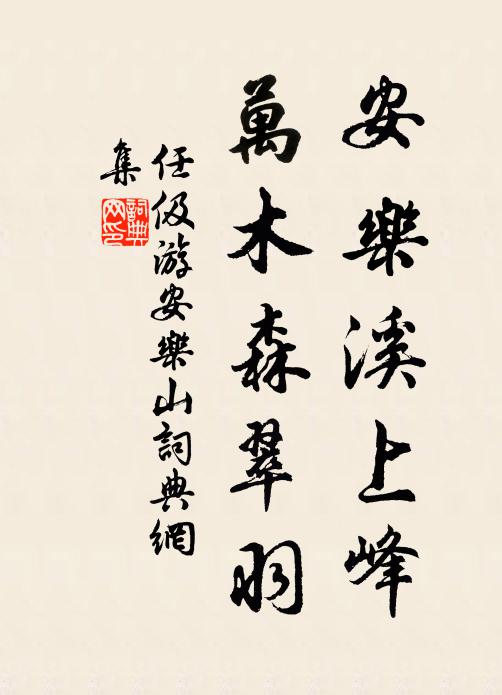 安樂溪上峰
萬木森翠羽
任伋游安樂山詞典網
集
詞典
网印